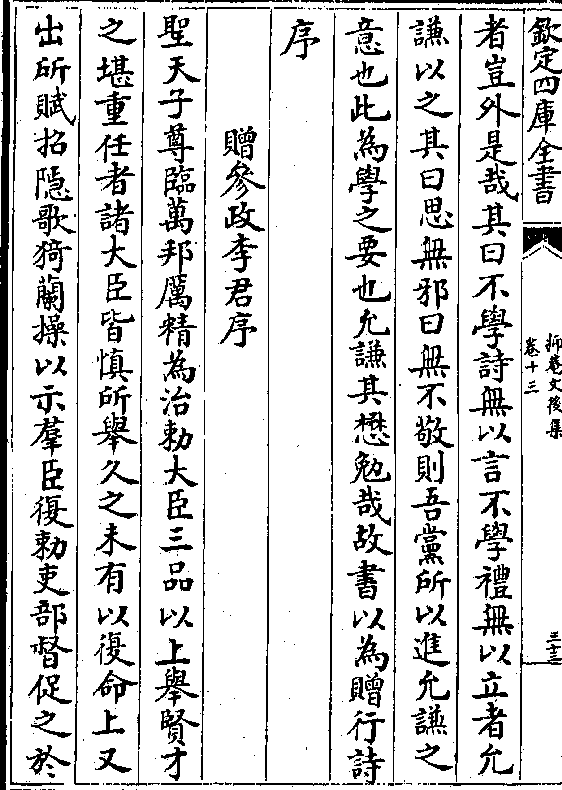 欽定四庫全書
抑菴文後集
卷十三
三十三
者豈外是哉其曰不學詩無以言不學禮無以立者允
謙以之其曰思無邪曰無不敬則吾黨所以進允謙之
意也此為學之要也允謙其懋勉哉故書以為贈行詩
序
贈參政李君序
聖天子尊臨萬邦厲精為治勅大臣三品以上舉賢才
之堪重任者諸大臣皆慎所舉久之未有以復命上又
出所賦招隠歌猗蘭操以示羣臣復勅吏部督促之於